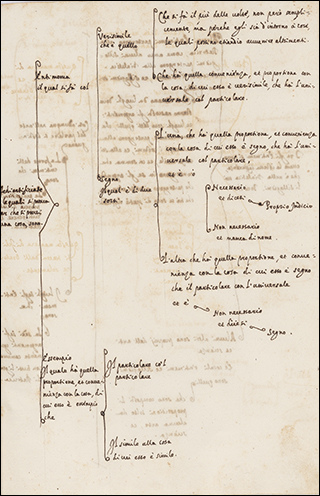 Che si fa il più delle volte, non però sempli-
cemente, ma perché egli sia d'intorno à cose
le quali possino etiandio avvenire altrimenti.
Verisimile
che è quello
Entimema
il qual si fa col
Che ha quella convenienza, et proportione con
la cosa di cui esso è verisimile che ha l'uni-
versale col particolare.
L'una, che ha quella proportione, et convenienza
con la cosa di cui esso è segno, che ha l'uni-
versale col particolare,
et è
Segno,
il qual è di due
sorti
Necessario
et dicesi
Proprio Indicio
Non necessario
et manca di nome.
le quali
che si
una cosa, sono
L'altra che ha quella proportione, et conve-
nienza con la cosa di cui esso è segno
che il particolare con l'universale
et è
Non necessario
et
Segno.
Essempio
Il quale ha quella
proportione, et conve-
nienza con la cosa, di
cui esso è essempio
che
Il particolare col
particolare
Il simile alla cosa
di cui esso è simile.